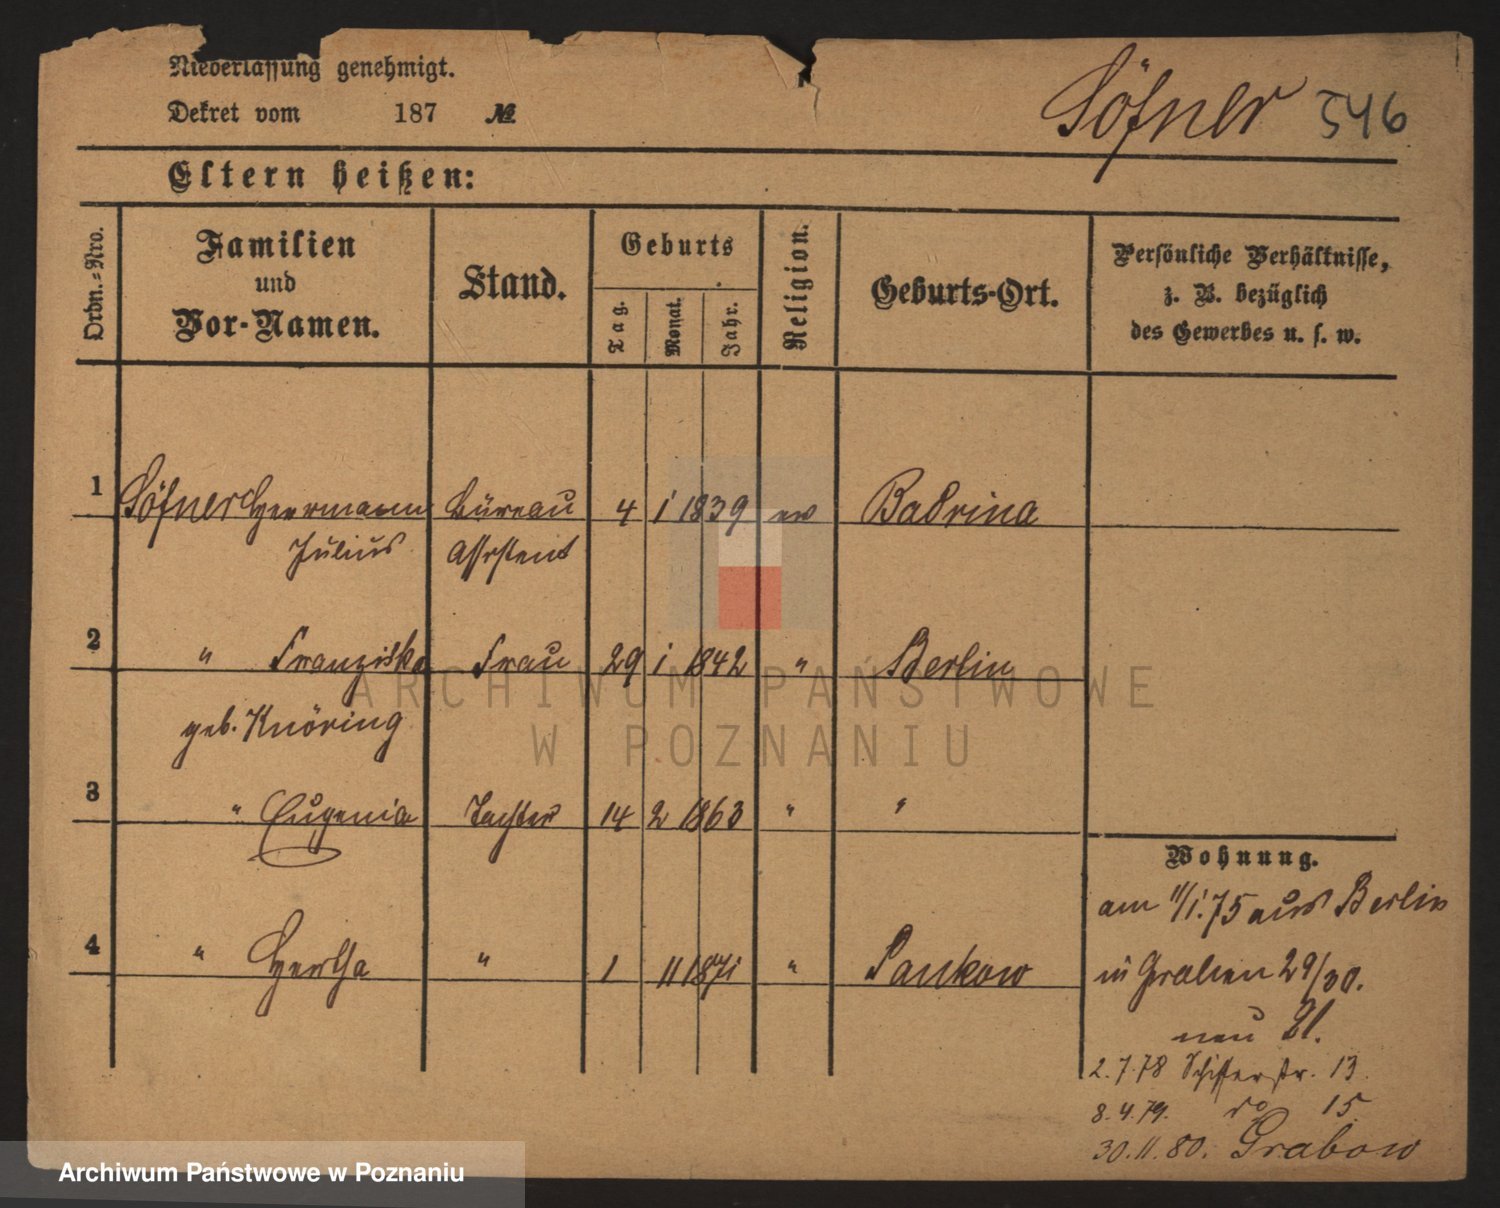 Niederlassung genehmigt.
Dekret vom 187 №
Söfner 546
Eltern heißen:
Ordn.-Nro.
Familien
und
Vor-Namen.
Stand.
Geburts
Tag.
Monat.
Jahr.
Religion.
Geburts-Ort.
Persönliche Verhältnisse,
z. B. bezüglich
des Gewerbes u. s. w.
1 Söfner Herrmann Büreau 4 1 1839 ev Badrina
Julius Assistent
2 " Franziska Frau 29 1 1842 " Berlin
geb. Knöring
3 " Eugenia Tochter 14 2 1863 " "
Wohnung.
am 11/1.75 aus Berlin
4 " Hertha " 1 11 1871 " Pankow
in Graben 29/30.
neu 21.
2.7.78 Schifferstr. 13
8.4.79. do 15
30.11.80. Grabow
ARCHIWUM PAŃSTWOWE
W POZNANIU
Archiwum Państwowe w Poznaniu